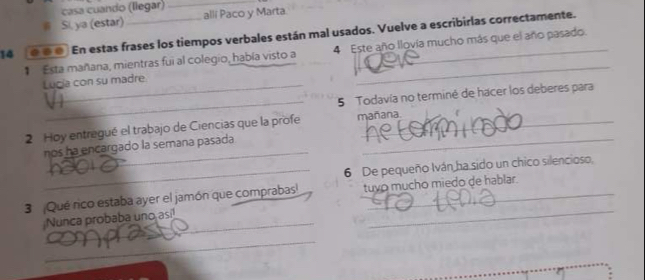 casa cuando (llegar)
8 Sí, ya (estar) allí Paco y Marta.
14 En estas frases los tiempos verbales están mal usados. Vuelve a escribirlas correctamente.
1 Esta mañana, mientras fui al colegio, había visto a
Lucía con su madre.
Vi
2 Hoy entregué el trabajo de Ciencias que la profe
nos ha encargado la semana pasada
había
3 ¡Qué rico estaba ayer el jamón que comprabas!
¡Nunca probaba uno así!
compraste
4 Este año llovía mucho más que el año pasado.
llueve
5 Todavía no terminé de hacer los deberes para
mañana.
he terminado
6 De pequeño Iván ha sido un chico silencioso,
tuvo mucho miedo de hablar.
Era tenia